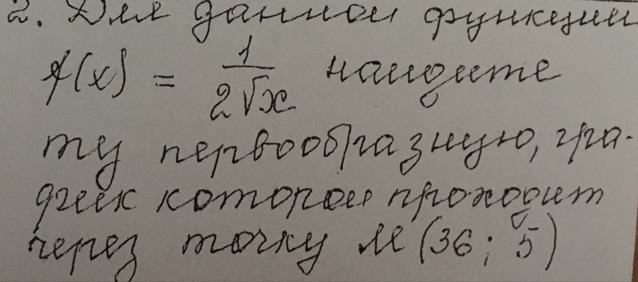 2. Для данной функции
f(x) = 1/(2√x) найдите
ту первообразную, гра-
фик которой проходит
через точку M (36; 5)